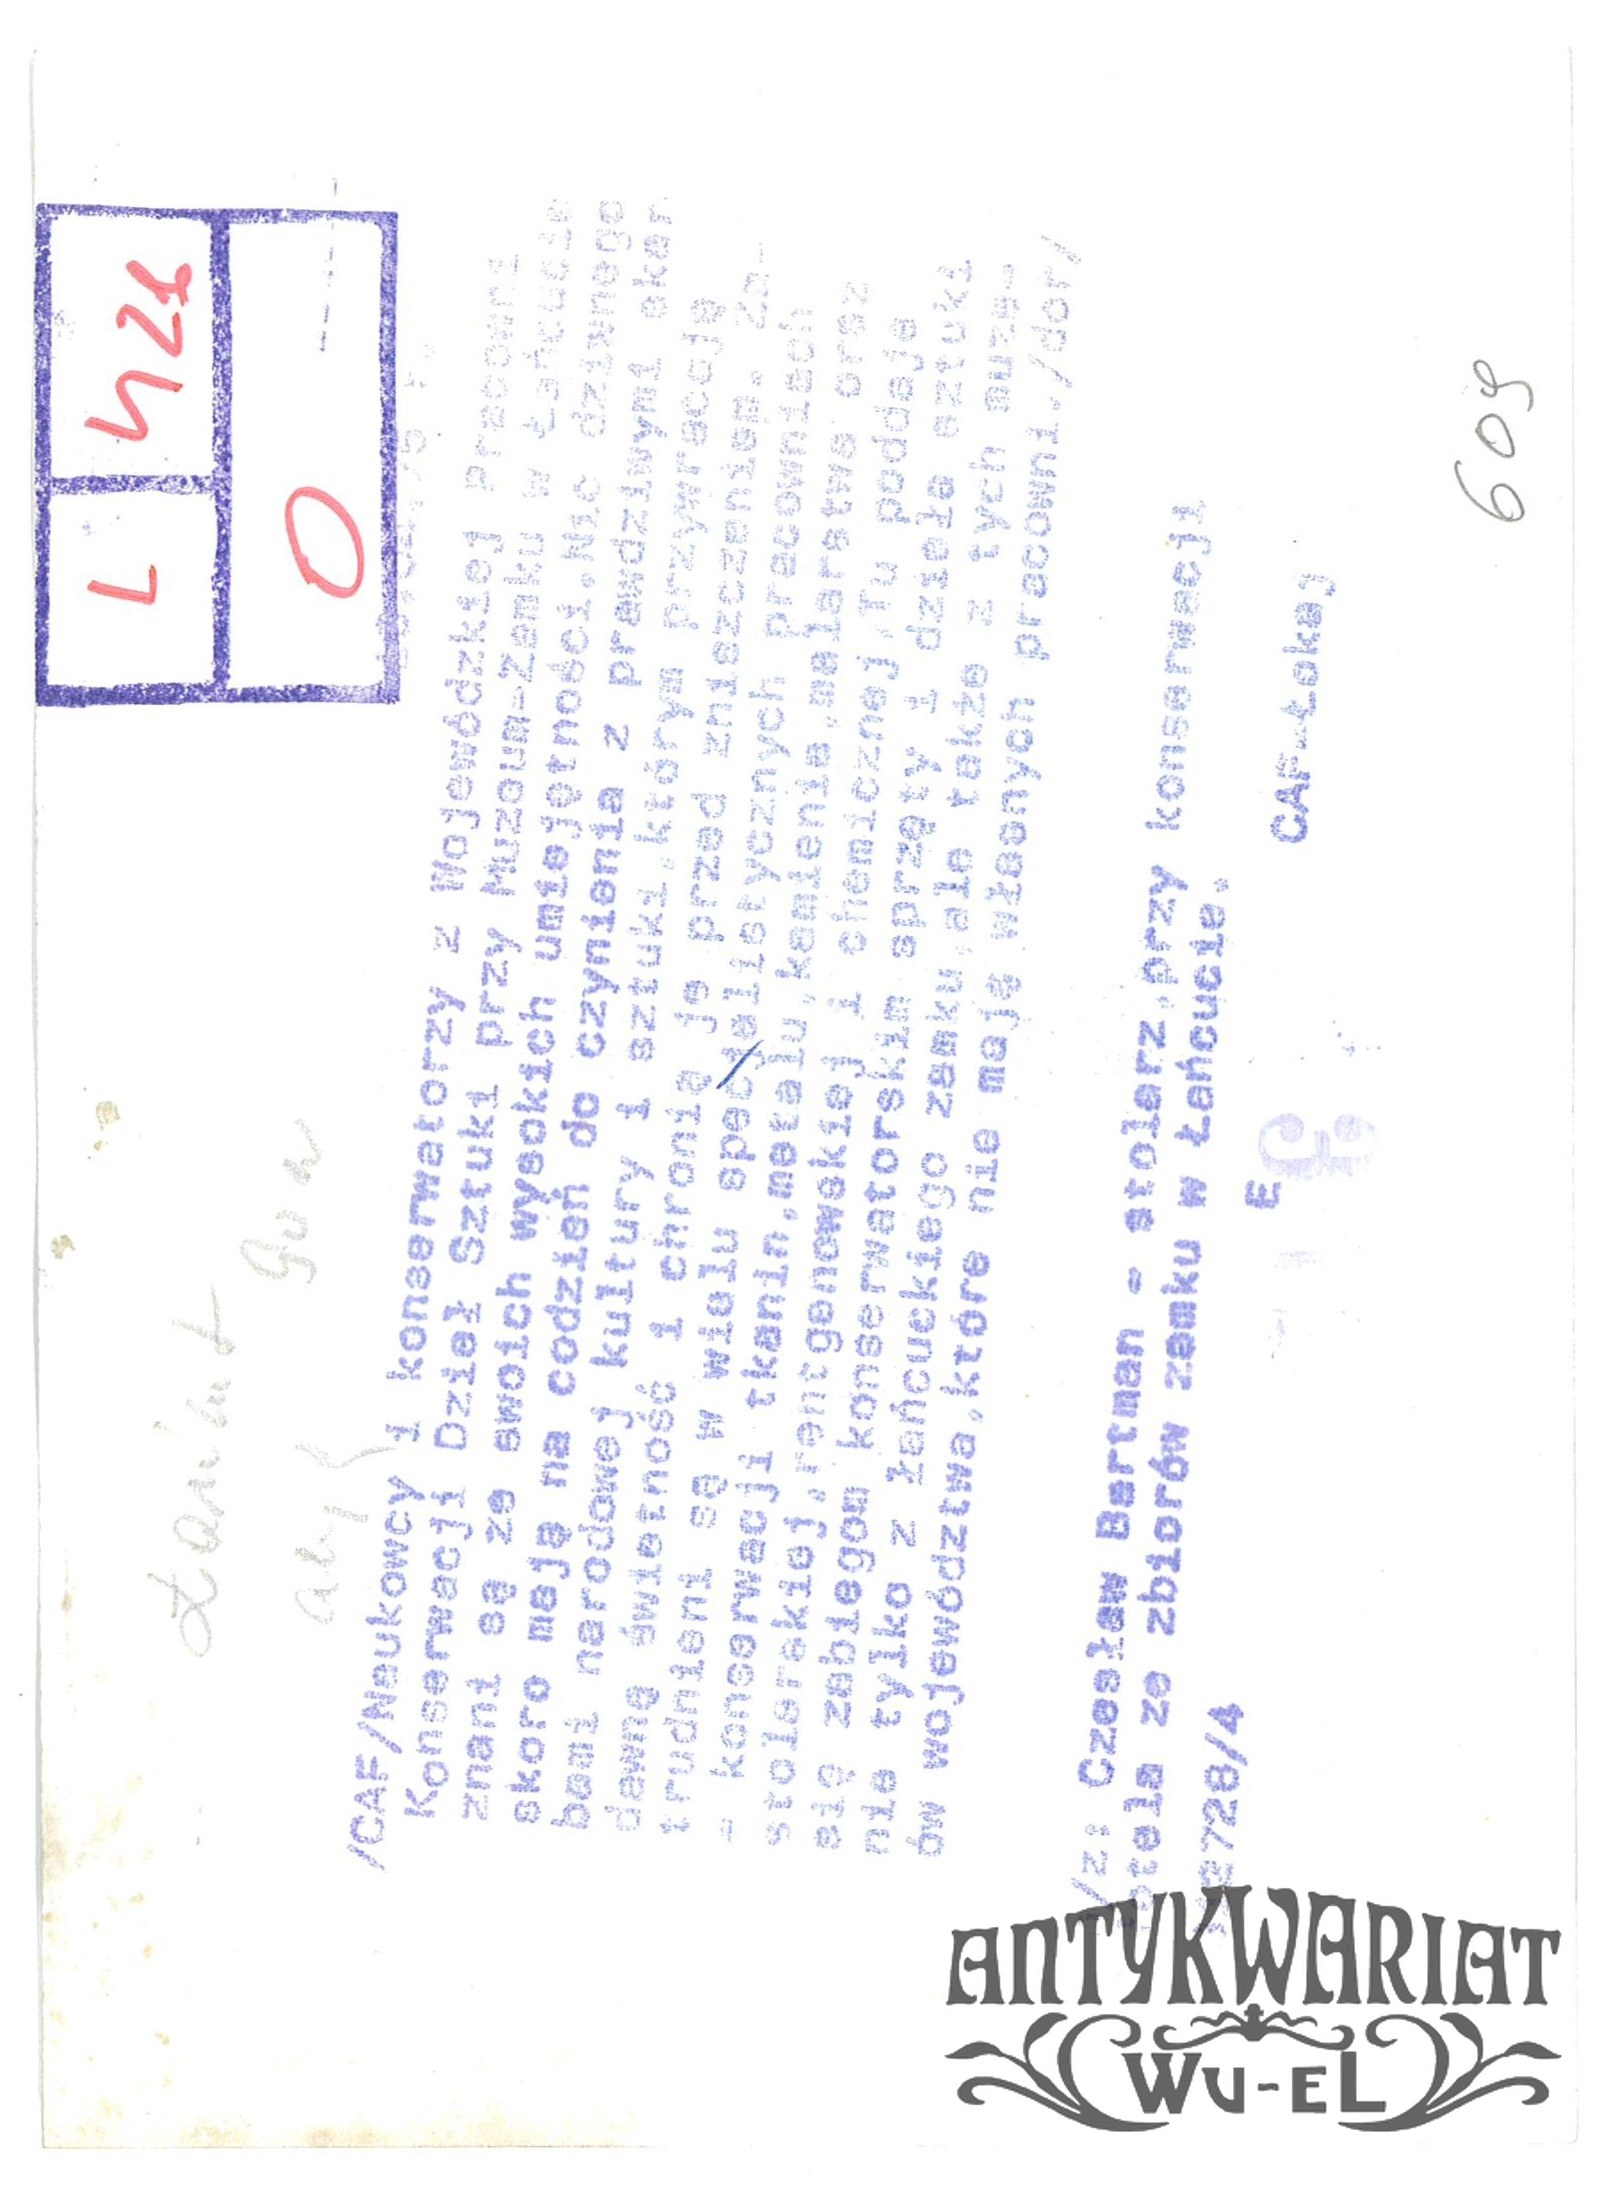 L
H28
0
Łańcut
/CAF/Naukowcy i konserwatorzy z Wojewódzkiej Pracowni
Konserwacji Dzieł Sztuki przy Muzeum-Zamku w Łańcucie
znani są ze swoich wysokich umiejętności.Nic dziwnego
skoro mają na codzień do czynienia z prawdziwymi skar
bami narodowej kultury i sztuki,którym przywracają
dawną świetność i chronią je przed zniszczeniem. Za-
trudnieni są w wielu specjalistycznych pracowniach
- konserwacji tkanin,metalu,kamienia,malarstwa oraz
stolarskiej,rentgenowskiej i chemicznej.Tu poddaje
się zabiegom konserwatorskim sprzęty i dzieła sztuki
nie tylko z łańcuckiego zamku,ale także z tych muze-
ów województwa,które nie mają własnych pracowni./dor/
/z: Czesław Bartman - stolarz,przy konserwacji
otela ze zbiorów zamku w Łańcucie.
2728/4
E
CAF-Łokaj
609
ANTYKWARIAT
WU-EL